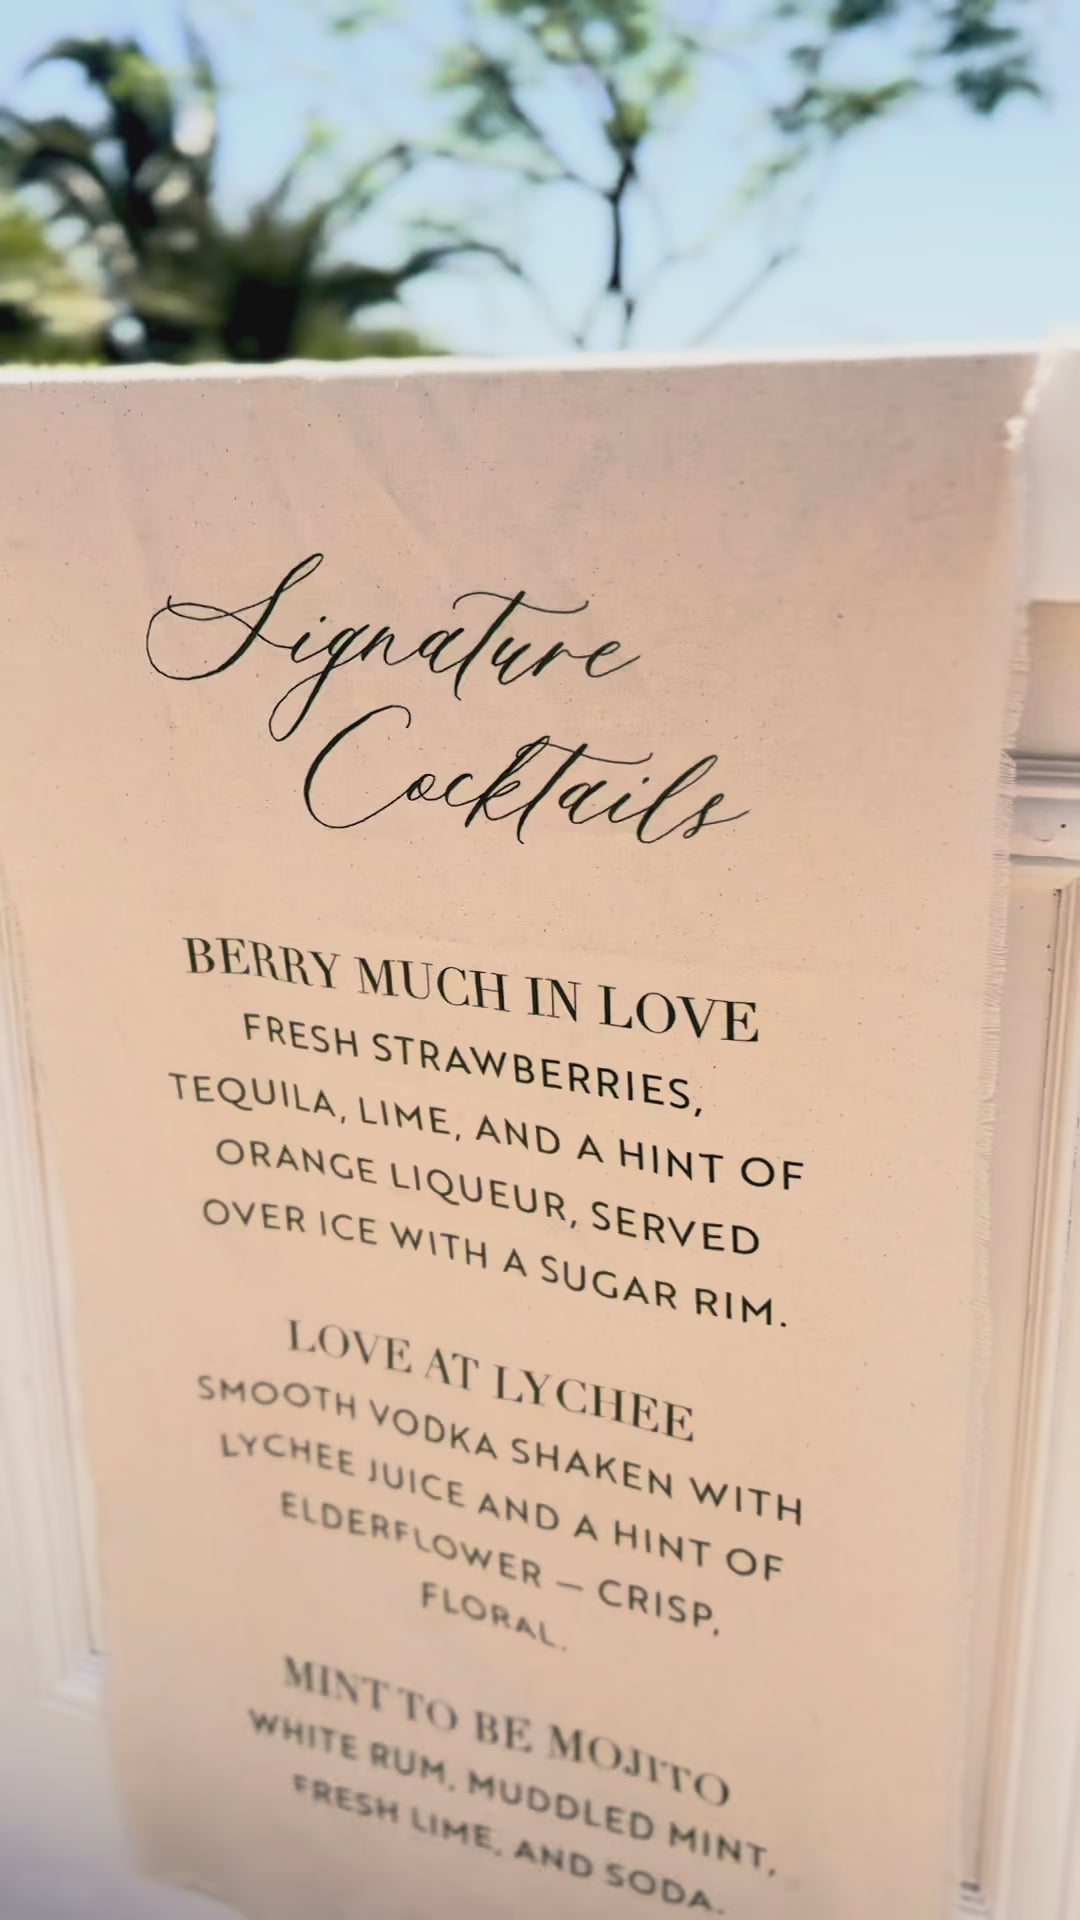 Signature
Cocktails
BERRY MUCH IN LOVE
FRESH STRAWBERRIES,
TEQUILA, LIME, AND A HINT OF
ORANGE LIQUEUR, SERVED
OVER ICE WITH A SUGAR RIM.
LOVE AT LYCHEE
SMOOTH VODKA SHAKEN WITH
LYCHEE JUICE AND A HINT OF
ELDERFLOWER – CRISP,
FLORAL.
MINT TO BE MOJITO
WHITE RUM, MUDDLED MINT,
FRESH LIME, AND SODA.